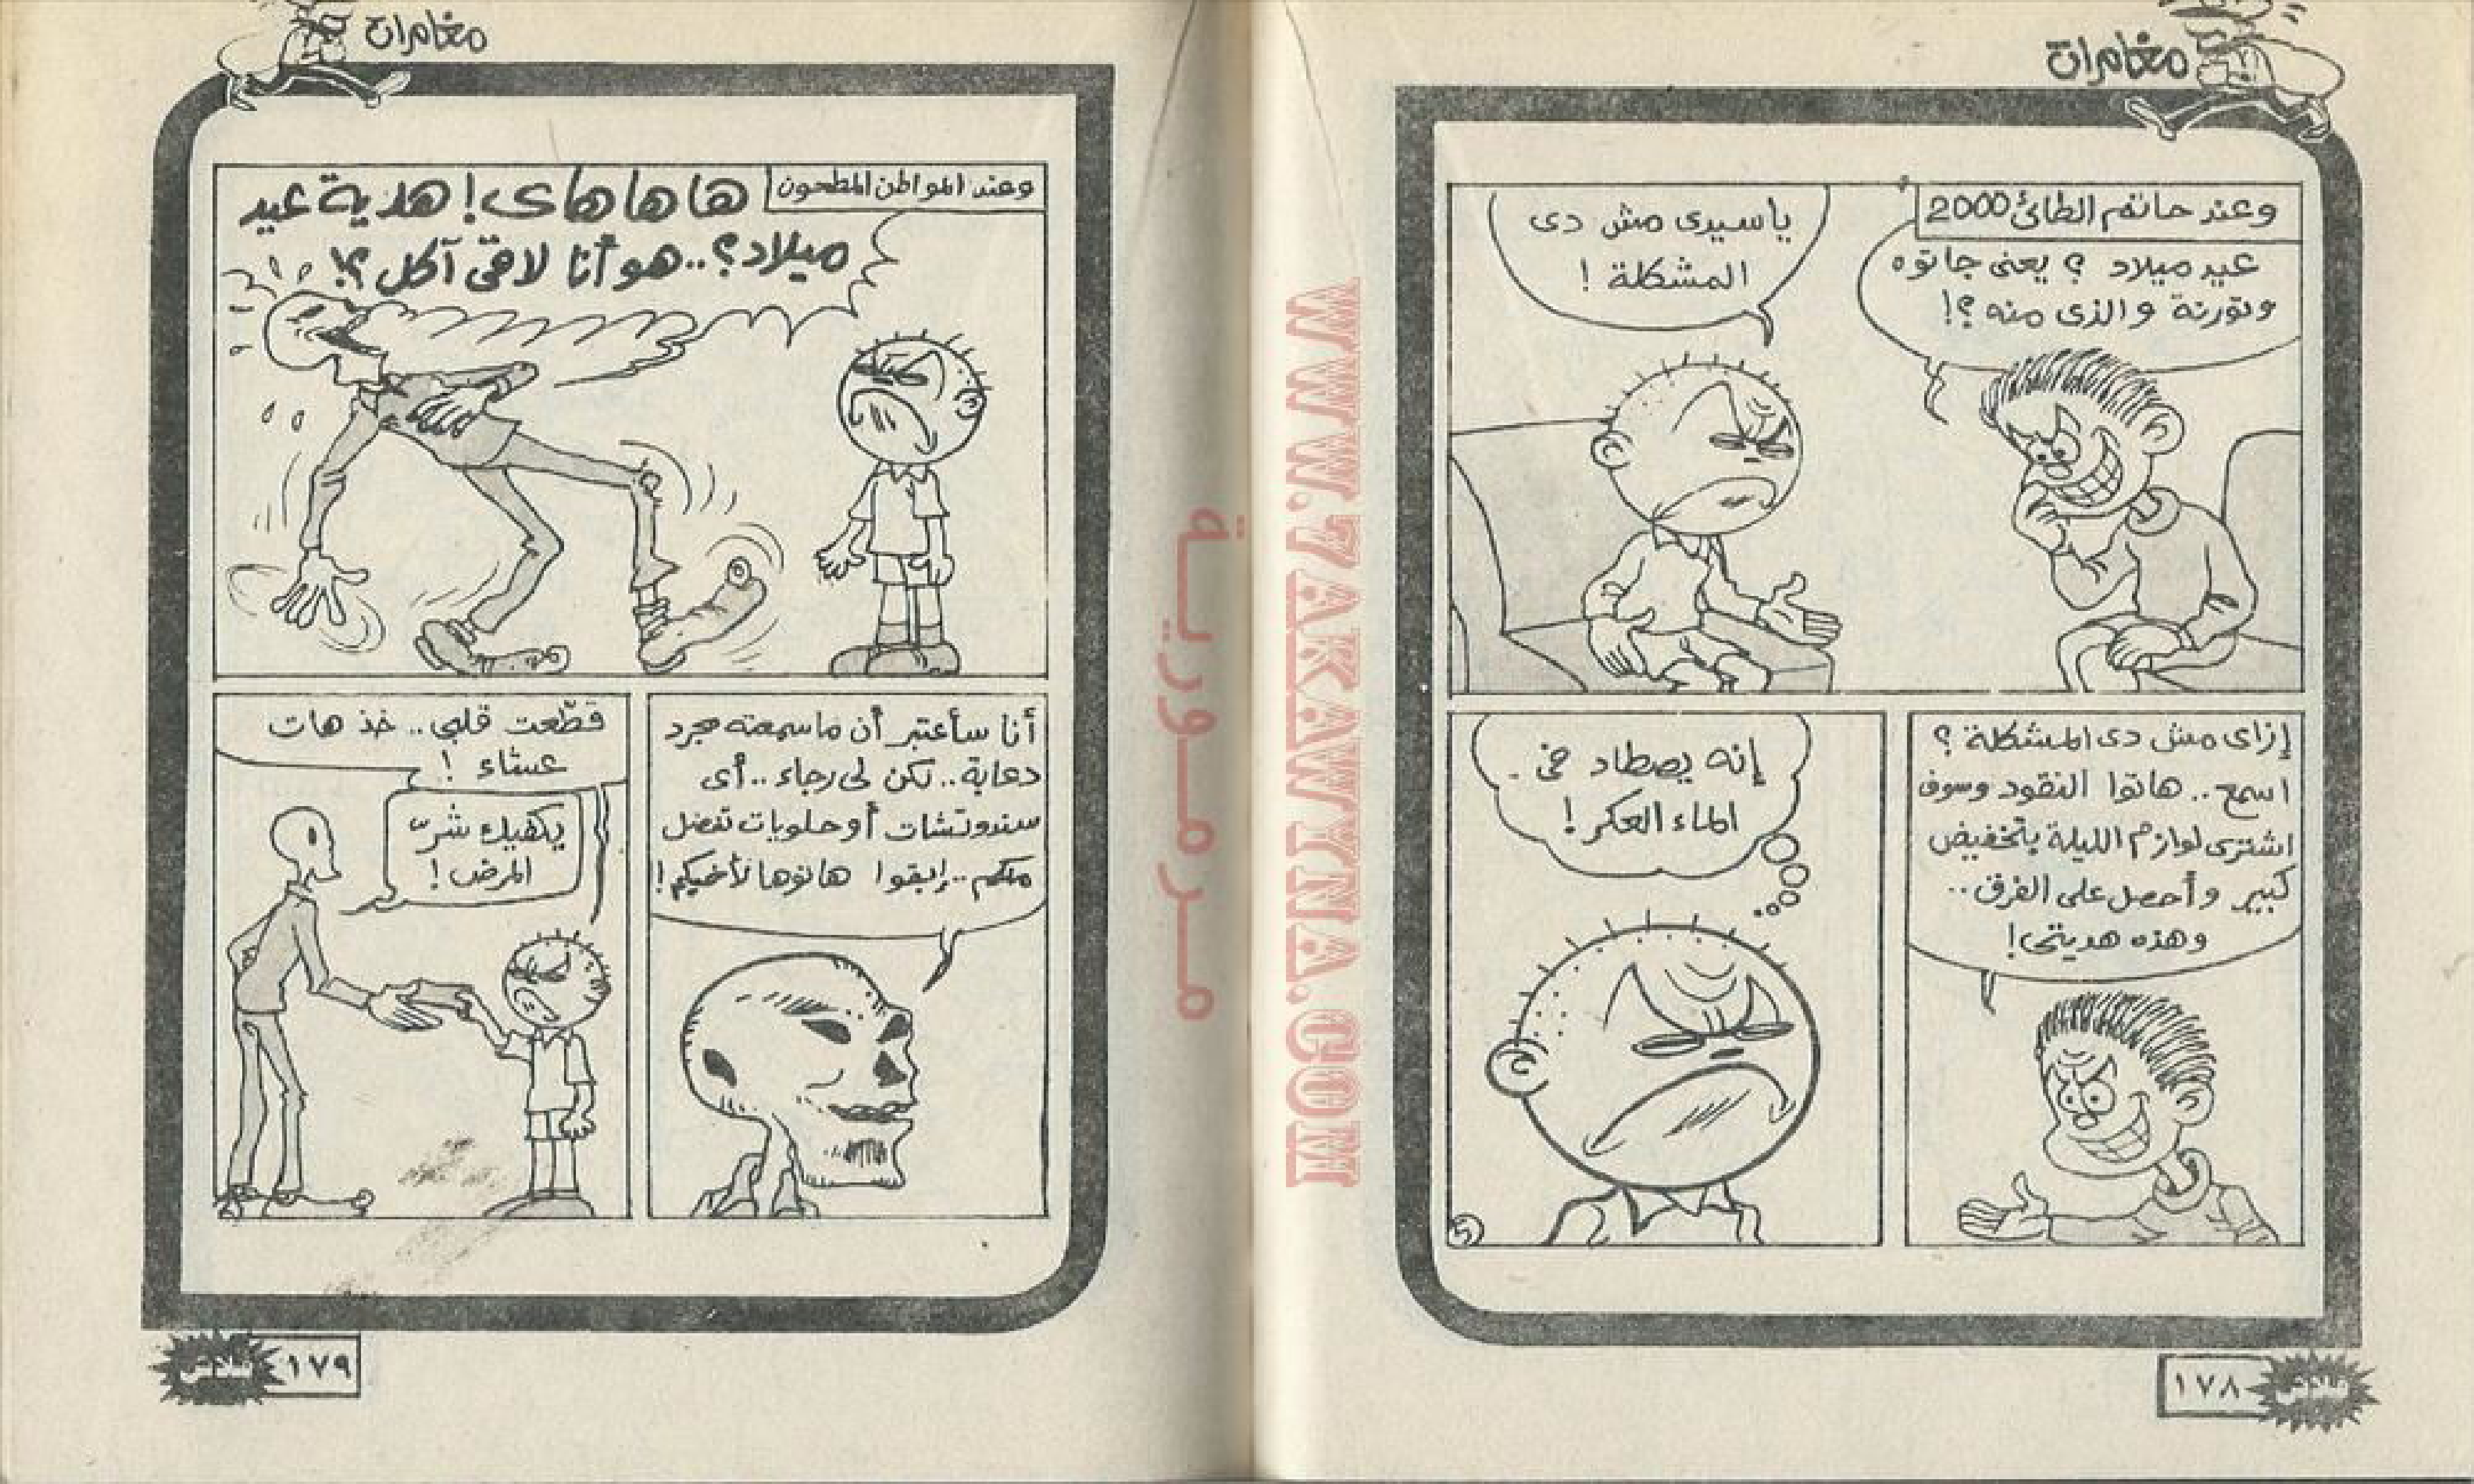 مغامرات
وعند حاتم الطائى 2000
عيد ميلاد ؟ يعنى جاتوه
وتورتة والذى منه ؟!
ياسيدى مش دى
المشكلة !
إزاى مش دى المشكلة ؟
اسمع .. هاتوا النقود وسوف
اشترى لوازم الليلة بتخفيض
كبير وأحصل على الفرق ..
وهذه هديتى !
إنه يصطاد فى
الماء العكر !
5
١٧٨
WWW.7AKAWYINA.COM
مرمورية
مغامرات
وعند المواطن المطحون
ها ها هاى ! هدية عيد
ميلاد ؟ .. هو أنا لاقى آكل ؟!
أنا سأعتبر أن ماسمعته مجرد
دعابة .. لكن لى رجاء .. أى
سندوتشات أو حلويات تفضل
منكم .. إبقوا هاتوها لأخيكم !
قطّعت قلبى .. خذ هات
عشاء !
يكفيك شرّ
المرض !
١٧٩